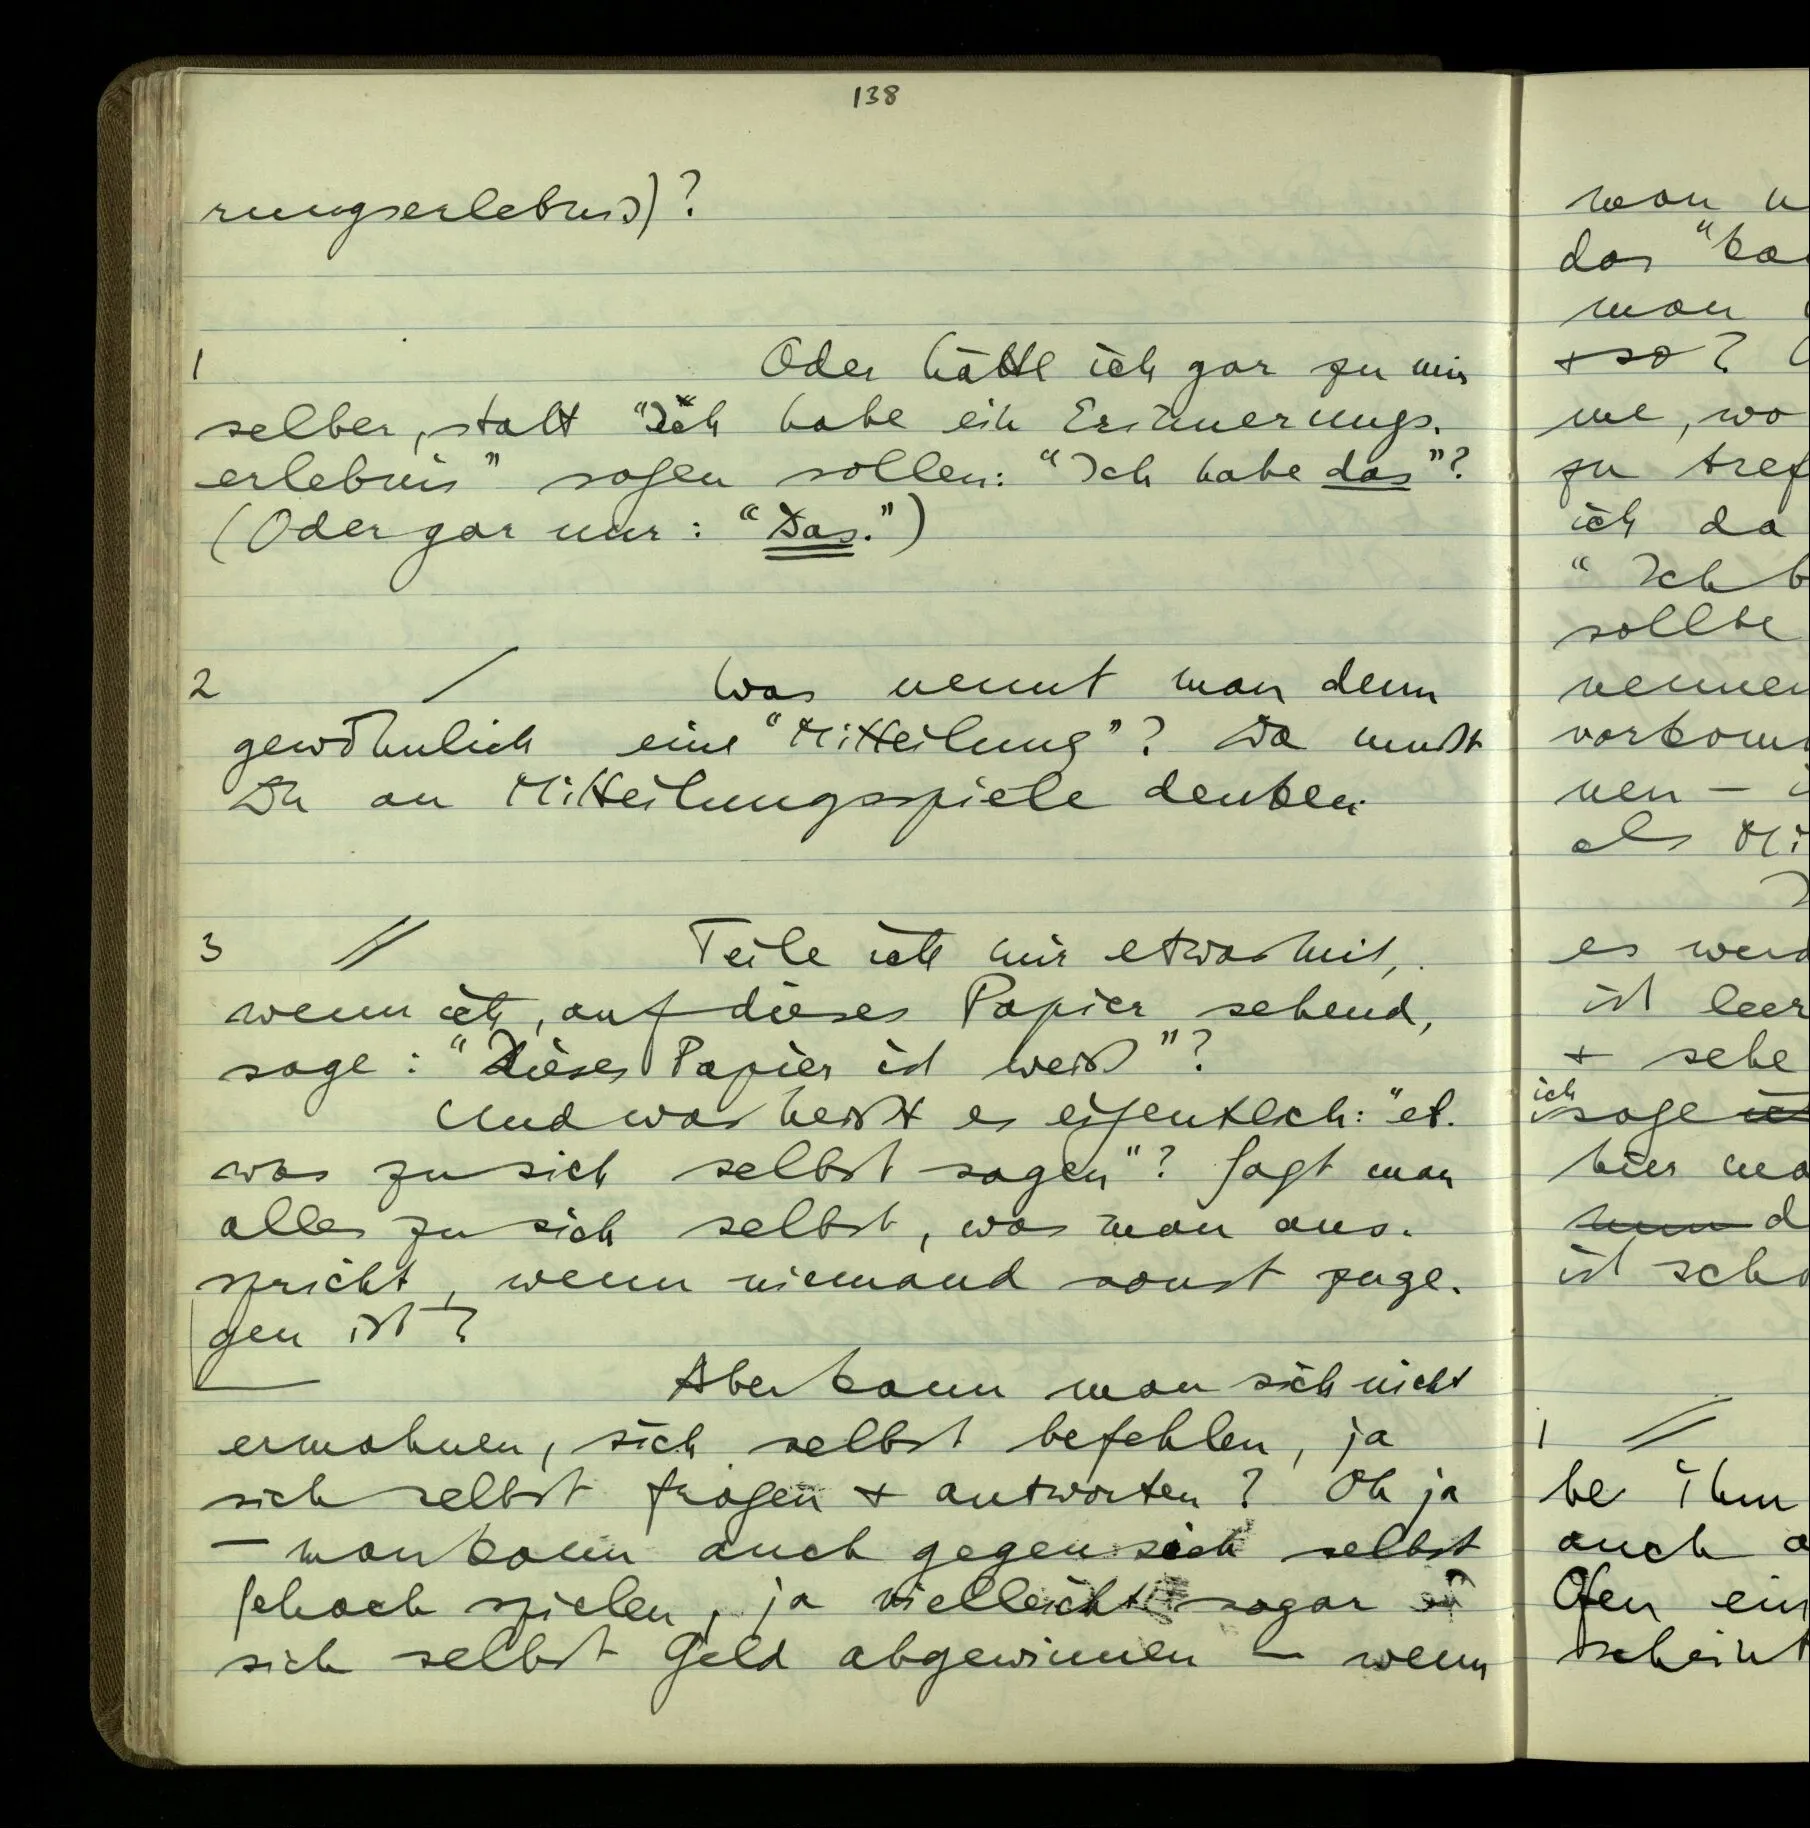 138
rungserlebnis)?
1 Oder hätte ich gar zu mir
selber, statt "Ich habe ein Erinnerungs-
erlebnis" sagen sollen: "Ich habe das"?
(Oder gar nur: "Das.")
2 / Was nennt man denn
gewöhnlich eine "Mitteilung"? Da mußt
Du an Mitteilungsspiele denken.
3 // Teile ich mir etwas mit,
wenn ich, auf dieses Papier sehend,
sage: "Dieses Papier ist weiß"?
Und was heißt es eigentlich: "et-
was zu sich selbst sagen"? Sagt man
alles zu sich selbst, was man aus-
spricht, wenn niemand sonst zuge-
gen ist?
Aber kann man sich nicht
ermahnen, sich selbst befehlen, ja
sich selbst fragen + antworten? Oh ja
– man kann auch gegen sich selbst
Schach spielen, ja vielleicht sogar
sich selbst Geld abgewinnen – wenn
man
das "ka
man
+ so?
me, wo
zu tref
ich da
"Ich b
sollte
nennen
vorkom
nen –
als Mi
es wer
ist leer
+ sehe
ich
sage
hier ma
d
ist scho
1 //
be ihm
auch a
Ofen ein
scheint